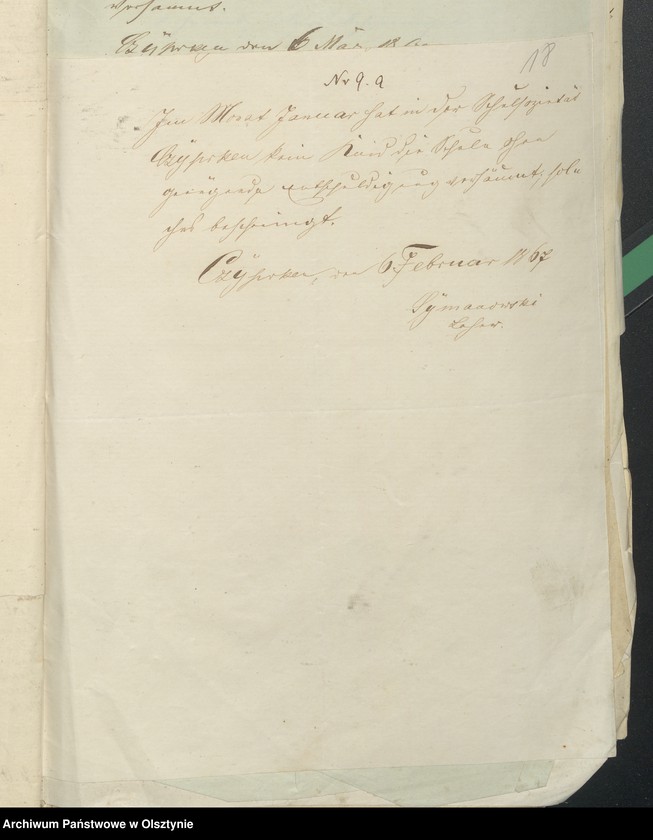 versäumt.
Czyprken den 6 März
18
No 9. a
Im Monat Januar hat in der Schulsozietät
Czyprken kein Kind die Schule ohne
genügende Entschuldigung versäumt, sol
ches bescheinigt.
Czyprken, den 6 Februar 1867
Symanowski
Lehrer.
Archiwum Państwowe w Olsztynie